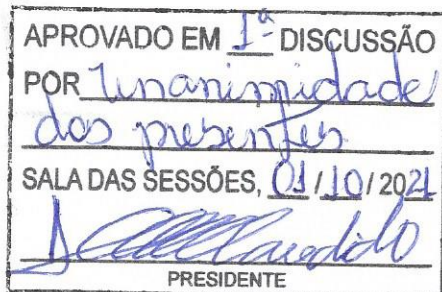 APROVADO EM 1ª DISCUSSÃO
POR Unanimidade
dos presentes
SALA DAS SESSÕES, 01 / 10 / 2021
PRESIDENTE